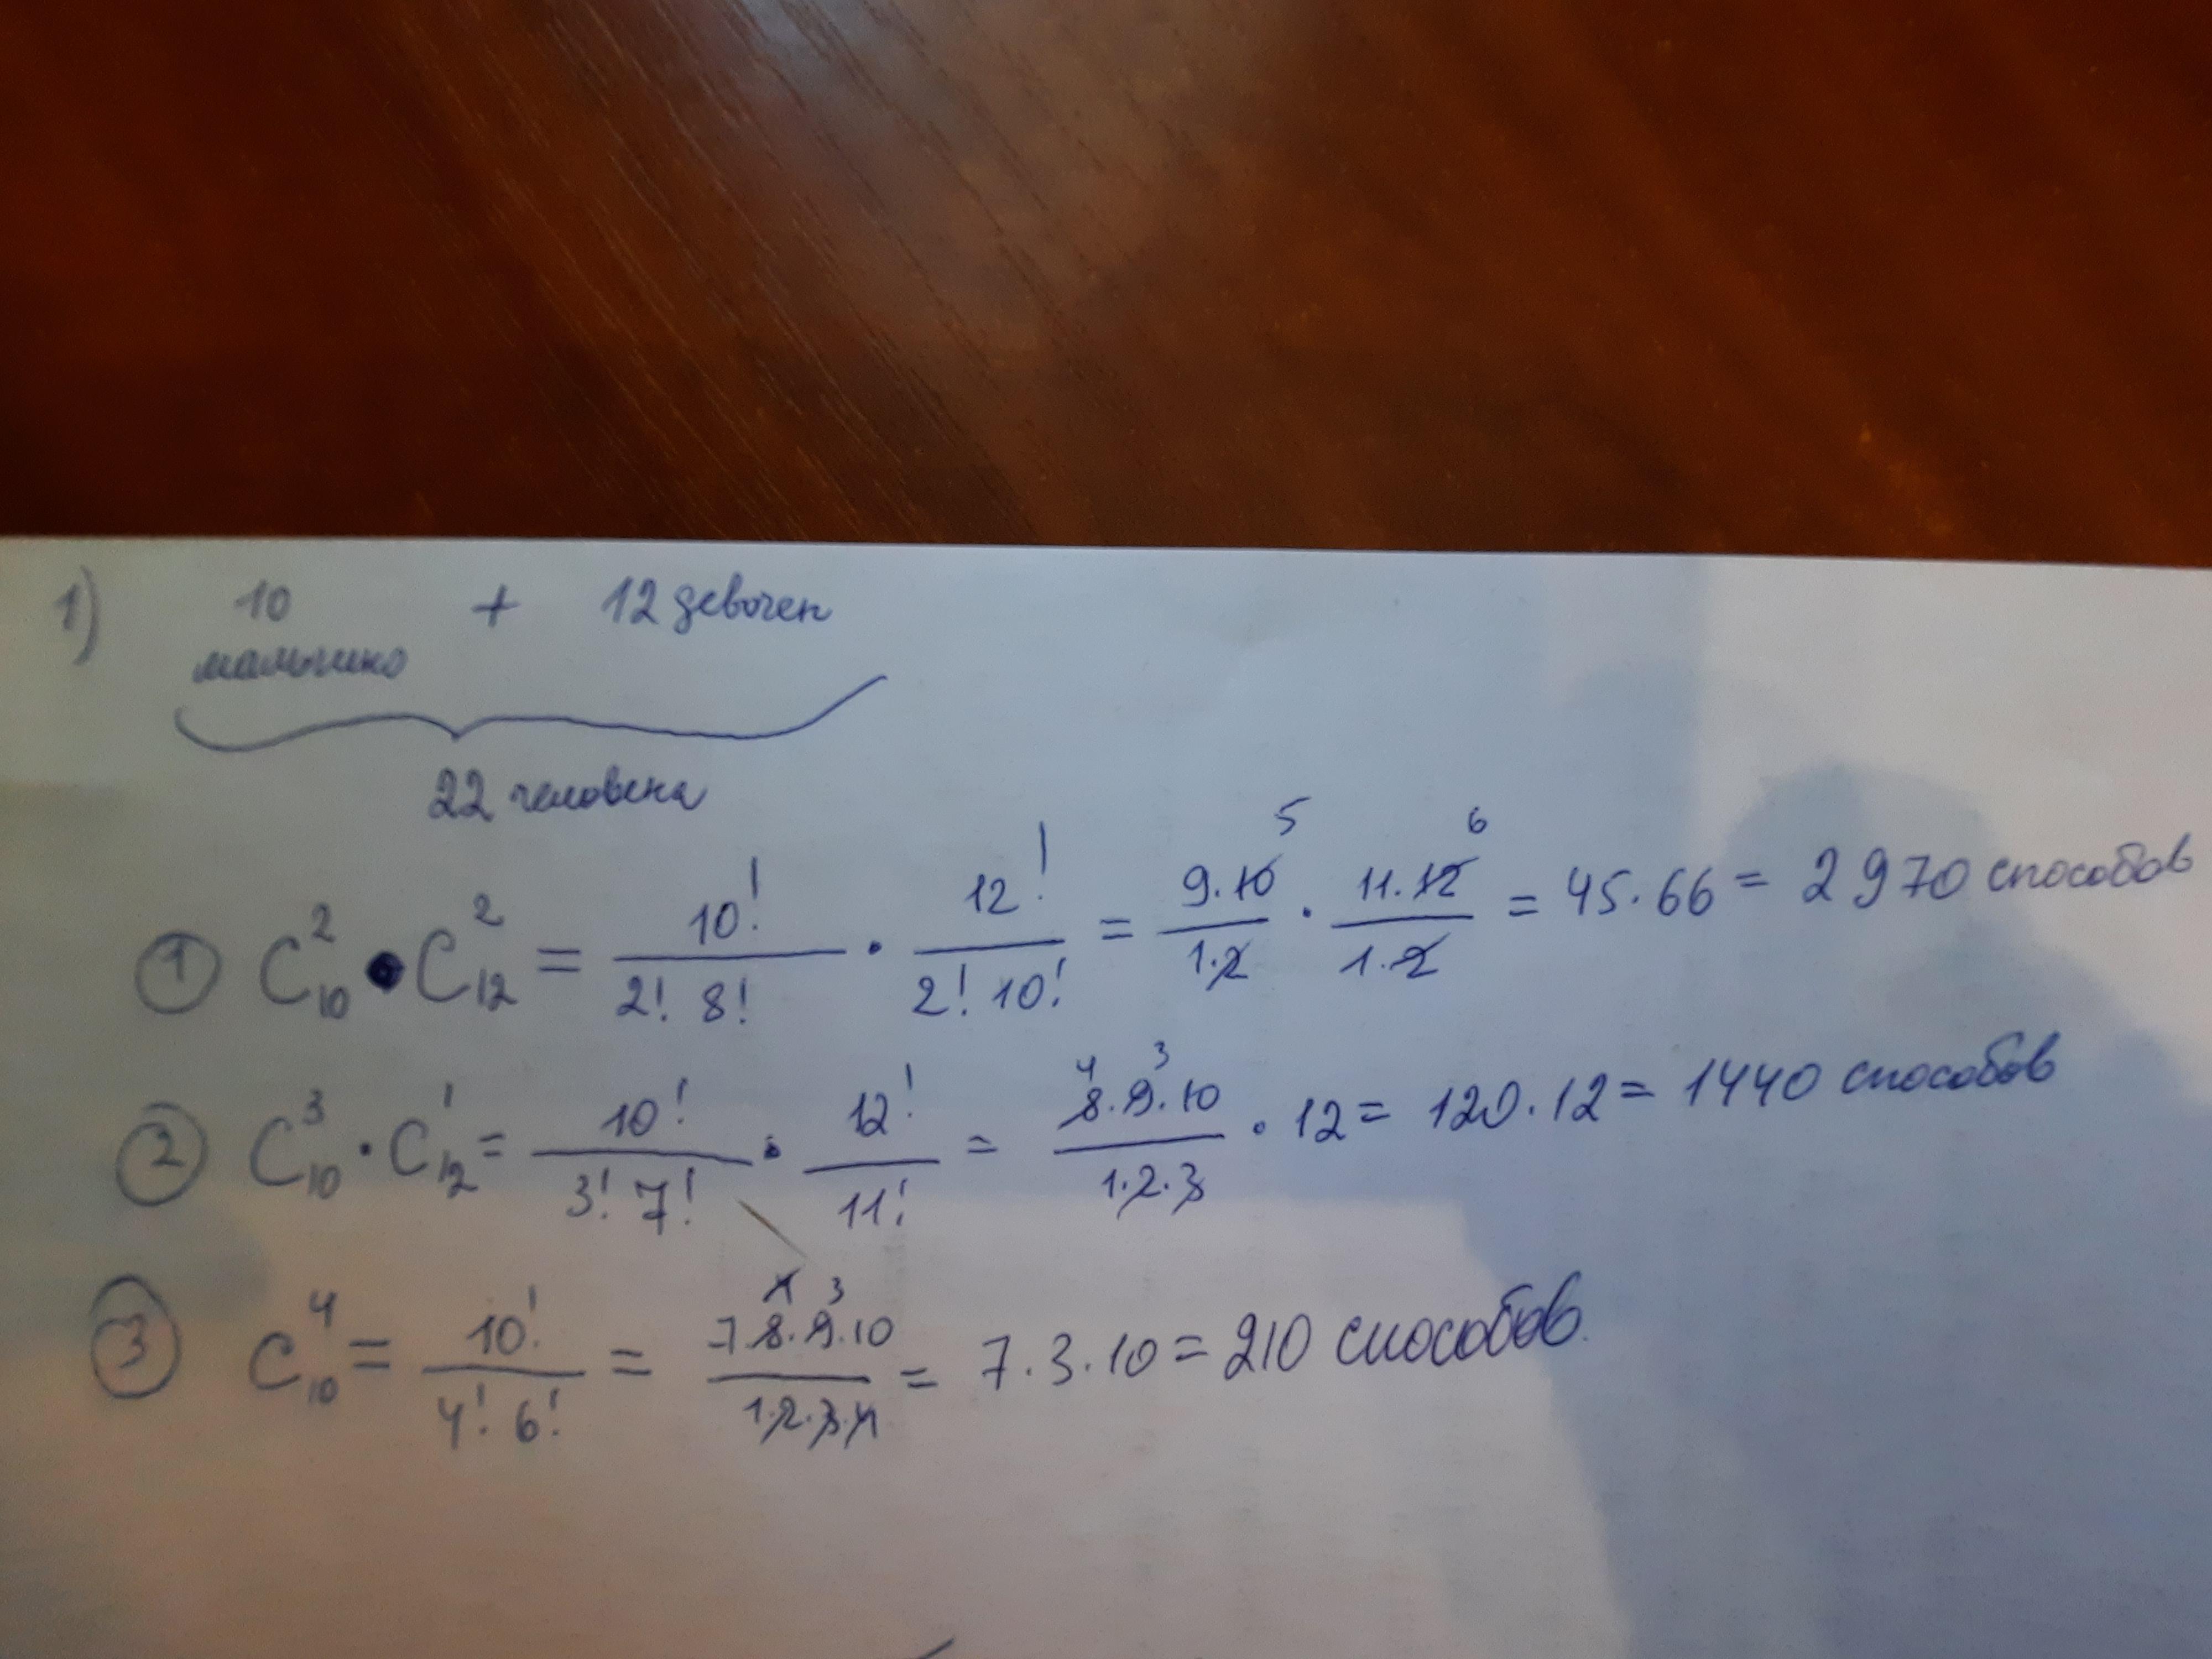 1) 10 + 12 девочек
мальчико
22 человека
① C₁₀² • C₁₂² = 10! / (2! 8!) · 12! / (2! 10!) = (9·10⁵) / (1·2) · (11·12⁶) / (1·2) = 45·66 = 2970 способов
② C₁₀³ · C₁₂¹ = 10! / (3! 7!) · 12! / 11! = (8⁴·9³·10) / (1·2·3) · 12 = 120·12 = 1440 способов
③ C₁₀⁴ = 10! / (4! 6!) = (7·8·9³·10) / (1·2·3·4) = 7·3·10 = 210 способов.